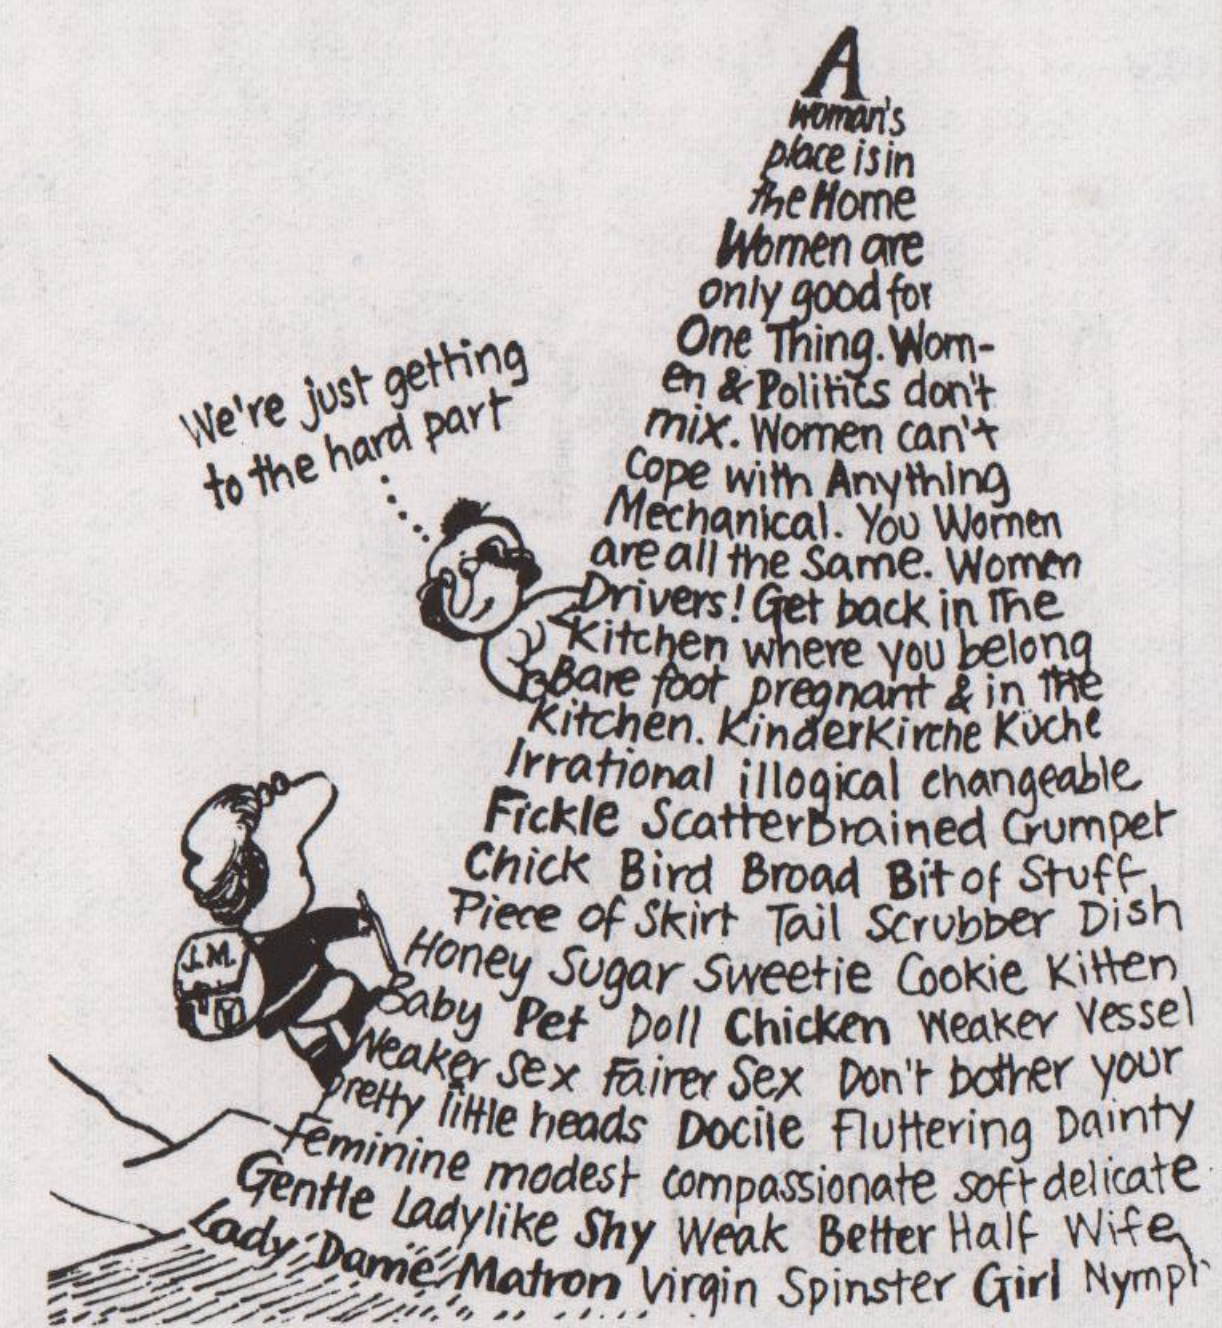 A
woman's
place is in
the Home
Women are
only good for
One Thing. Wom-
en & Politics don't
mix. Women can't
Cope with Anything
Mechanical. You Women
are all the Same. Women
Drivers! Get back in the
Kitchen where you belong
Bare foot pregnant & in the
Kitchen. Kinder Kirche Küche
Irrational illogical changeable
Fickle ScatterBrained Crumpet
Chick Bird Broad Bit of Stuff
Piece of Skirt Tail Scrubber Dish
Honey Sugar Sweetie Cookie Kitten
Baby Pet Doll Chicken Weaker Vessel
Weaker Sex Fairer Sex Don't bother your
pretty little heads Docile Fluttering Dainty
Feminine modest compassionate soft delicate
Gentle Ladylike Shy Weak Better Half Wife
Lady Dame Matron Virgin Spinster Girl Nymph
We're just getting
to the hard part
J.M.